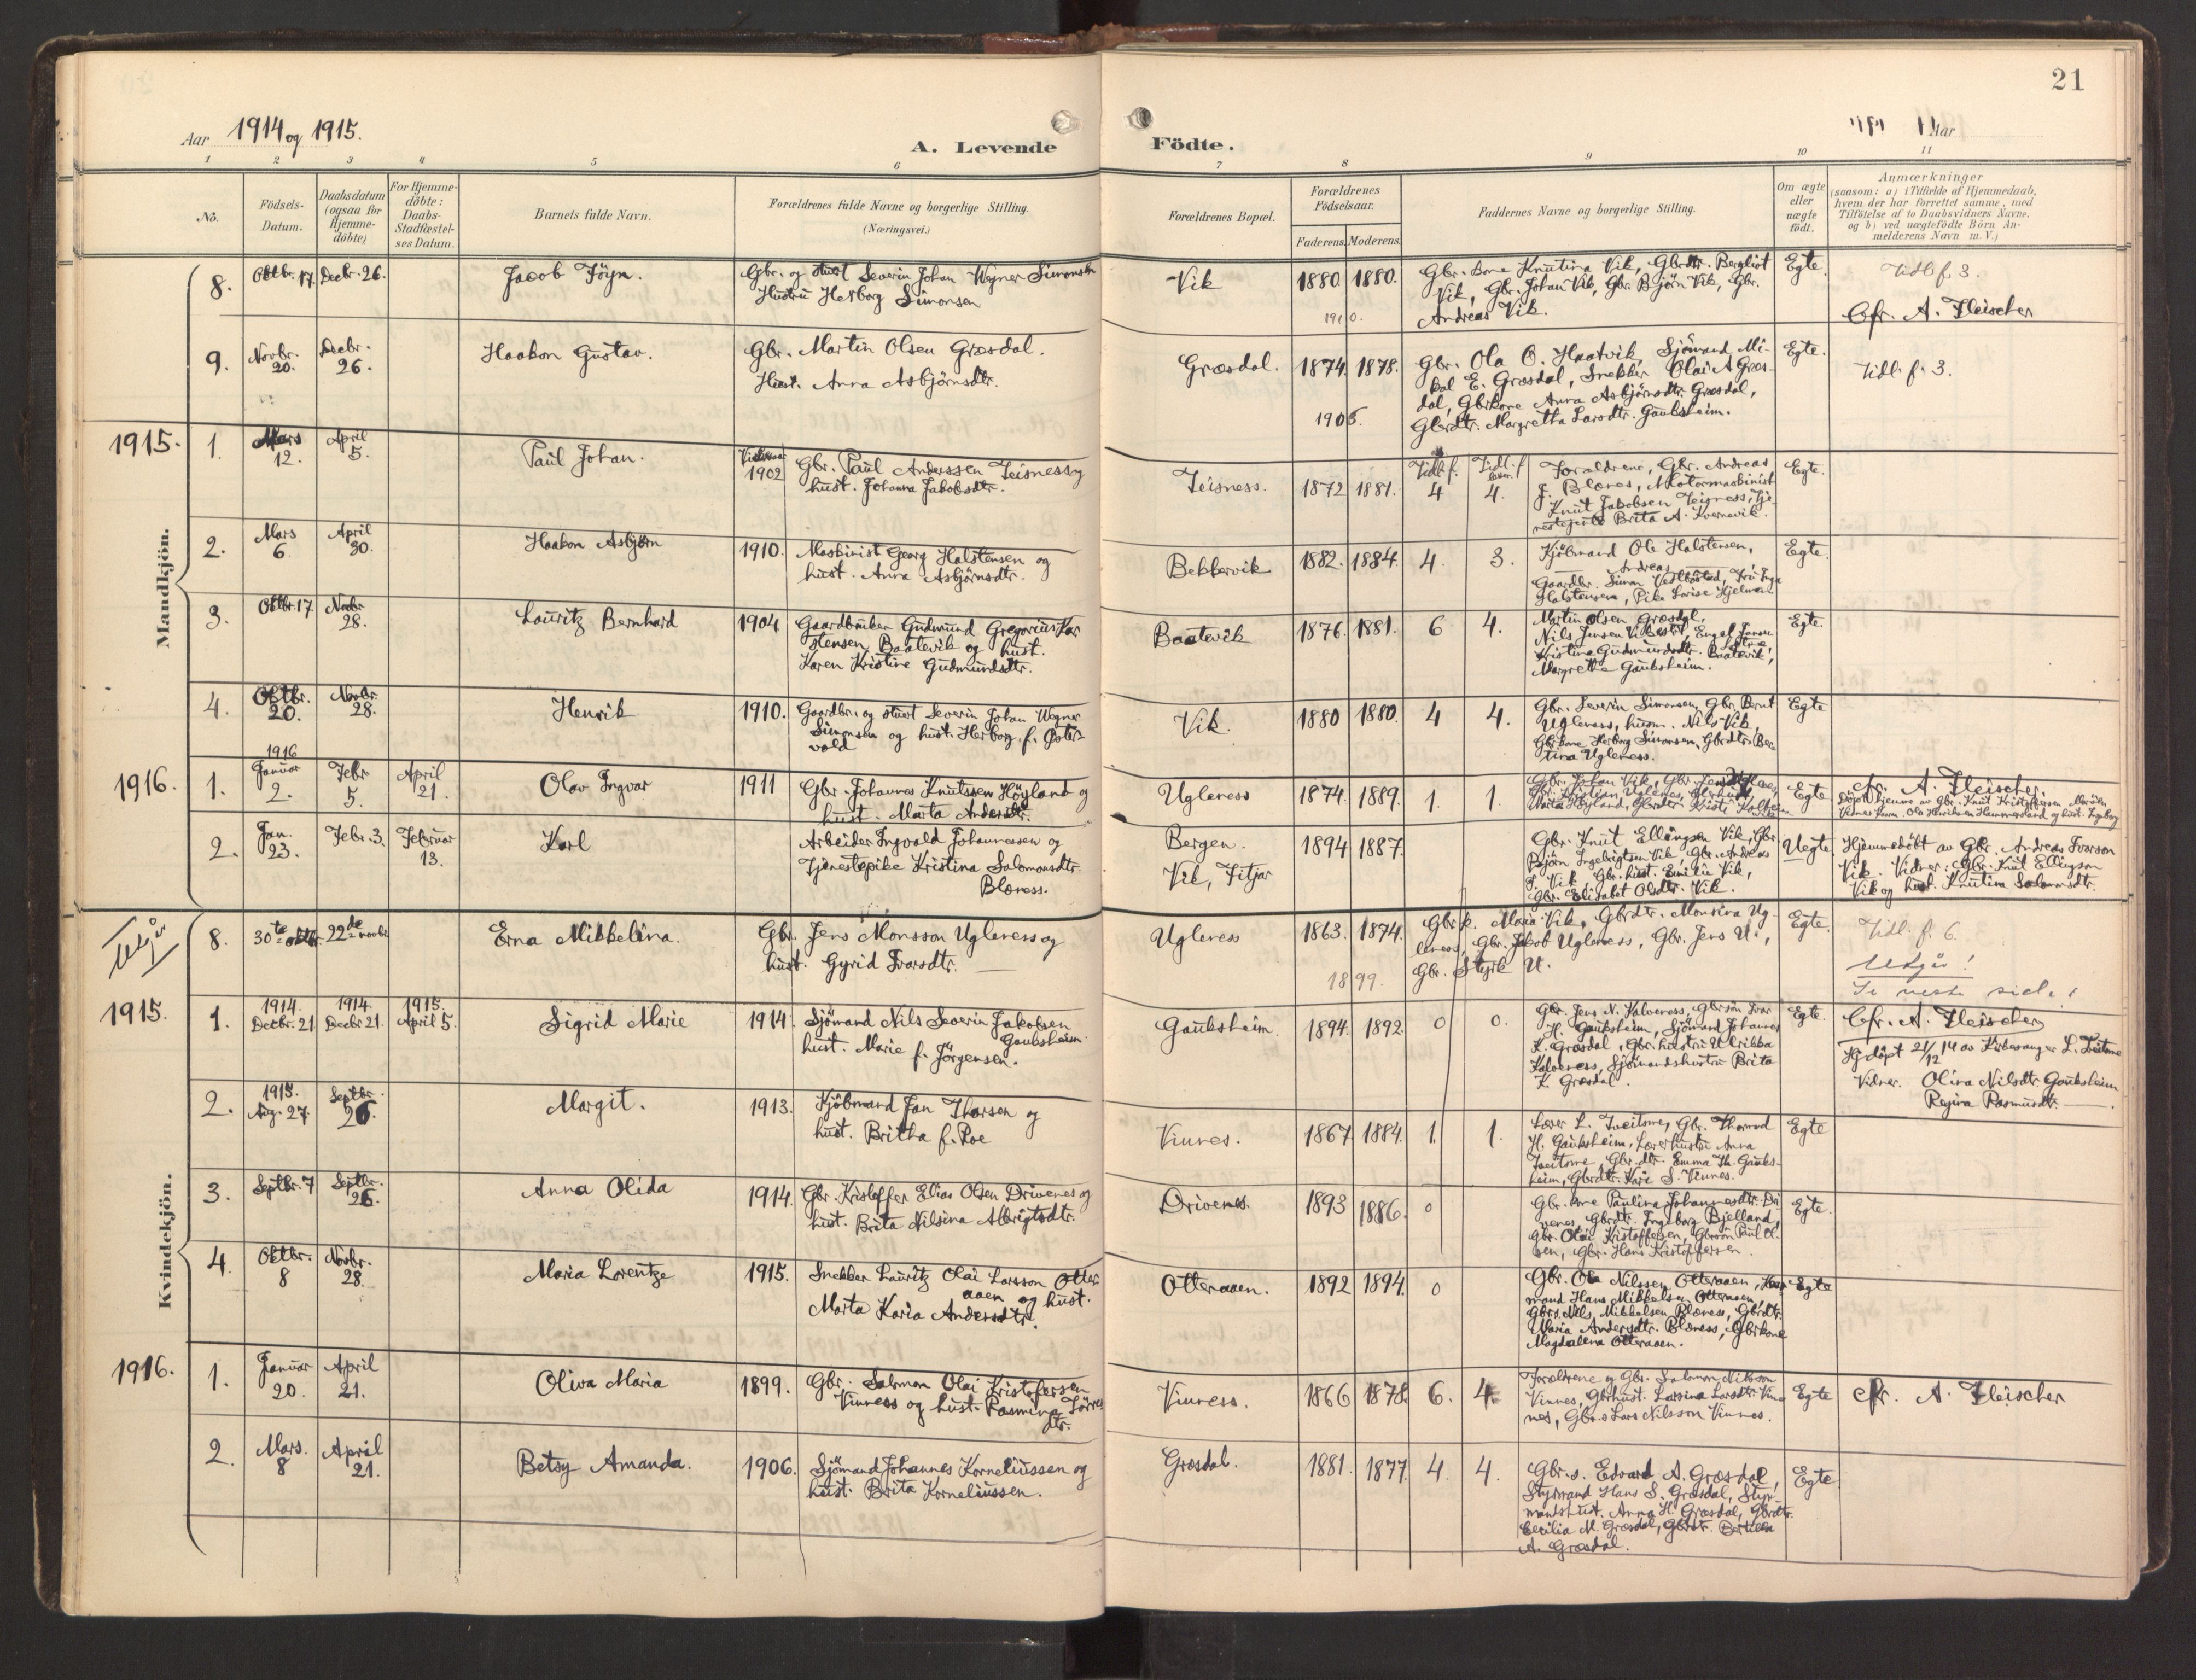 21
Aar 1914 og 1915.
A. Levende Födte.
Aar
1 2 3 4 5 6 7 8 9 10 11
No.
Födsels-Datum.
Daabsdatum (ogsaa for Hjemme-döbte)
For Hjemme-döbte: Daabs-Stadfæstel-ses Datum.
Barnets fulde Navn.
Forældrenes fulde Navne og borgerlige Stilling.
(Næringsvei.)
Forældrenes Bopæl.
Forældrenes Födselsaar.
Faderens. Moderens.
Faddernes Navne og borgerlige Stilling.
Om ægte eller uægte födt.
Anmærkninger
(saasom: a) i Tilfælde af Hjemmedaab,
hvem der har forrettet samme, med
Tilföielse af to Daabsvidners Navne,
og b) ved uægtefödte Börn An-
melderens Navn m. V.)
Mandkjön.
8. Oktbr. 17. Decbr. 26. Jacob Föyn.
Gbr. og stuert Severin Johan Wegner Simonsen
Hustru Herborg Simonsen
Vik 1880. 1880.
1910.
Gbr. kone Knutina Vik, Gbrdtr. Bergliot
Vik, Gbr. Johan Vik, Gbr. Björn Vik, Gbr.
Andreas Vik.
Egte.
Tidl. f. 3.
Cfr. A. Fleischer
9. Novbr. 20. Decbr. 26. Haakon Gustav.
Gbr. Martin Olsen Græsdal.
Hust. Anna Asbjörnsdtr.
Græsdal. 1874. 1878.
1906.
Gbr. Ola O. Haatvik, Sjömand Mi-
kal E. Græsdal, Snekker Olai A Græs-
dal, Gbrkone Anna Asbjörnsdtr. Græsdal,
Gbrdtr. Margretha Larsdtr. Gauksheim.
Egte.
Tidl. f. 3.
1915.
1. Mars 12. April 5. Paul Johan.
1902 Gbr. Paul Anderssen Teisness og
hust. Johanna Jakobsdtr.
Teisness. 1872 1881.
Tidl. f. 4 Tidl. f. 4.
Forældrene, Gbr. Andreas
J. Blænes, Motormaskinist
Knut Jakobsen Teigness, Tje-
nestejente Brita A. Kvernevik.
Egte.
2. Mars 6. April 30. Haakon Asbjörn
1910. Maskinist Georg Halstensen og
hust. Anna Asbjörnsdtr.
Bekkervik 1882. 1884. 4. 3.
Kjöbmand Ole Halstensen,
Andreas
Gaardbr. Simon Vestböstad, Fru Inga
Halstensen, Pike Lovise Hjelmen
Egte.
3. Oktbr. 17 Novbr. 28. Lauritz Bernhard
1904 Gaardbruker Gudmund Gregorius Kar
stensen, Baatevik og hust.
Karen Kristine Gudmundsdtr.
Baatevik 1876. 1881. 6 4.
Martin Olsen Græsdal,
Kristina Gudmundsdtr. Baatevik,
Margrethe Gauksheim.
Egte.
4. Oktbr. 20. Novbr. 28. Henrik
1910. Gaardbr. og stuert Severin Johan Wegner
Simonsen og hust. Herborg f. Öster-
vold
Vik. 1880 1880. 4 4.
Gbr. Severin Simonsen, Gbr. Bernt
Ugleness, husm. Nils Vik,
Gbrkone Herborg Simonsen, Gbrdtr. Ber-
tina Ugleness.
Egte
1916.
1. 1916 Januar 2. Febr. 5. April 21. Olav Ingvar
1911 Gbr. Johannes Knutssen Höyland og
hust. Marta Andersdtr.
Ugleness 1874. 1889. 1. 1.
Egte
Cfr. A. Fleischer.
2. Jan. 23. Febr. 3. Februar 13. Karl
Arbeider Ingvald Johannessen og
Tjenestepike Kristina Salomonsdtr.
Blæness.
Bergen.
Vik, Fitjar
1894 1887.
Gbr. Knut Ellingsen Vik, Gbr
Björn Ingebrigtsen Vik, Gbr. Andreas
J. Vik, Gbr. hust. Emilie Vik,
Gbr. Elisabet Olsdtr. Vik.
Uegte
Hjemmedöbt av Gbr. Andreas Ivarson
Vik. Vidner: Gbr. Knut Ellingson
Vik og hust. Knutina Salomonsdtr.
Kvindekjön.
Utgår
8. 30te oktbr. 22de novbr Erna Mikkelina.
Gbr. Jens Monsson Ugleness og
hust. Gyrid Ivarsdtr.
Ugleness 1863. 1874.
1899.
Gbr k. Maria Vik, Gbrdtr. Monsina Ug-
leness, Gbr. Jakob Ugleness, Gbr. Jens U.,
Gbr. Styrk U.
Egte.
Tidl. f. 6.
Utgår!
Se neste side!
1915.
1. 1914. Decbr. 21 1914. Decbr 21. 1915. April 5. Sigrid Marie
1914. Sjömand Nils Severin Jakobsen
Gauksheim.
hust. Marie f. Jörgensen.
Gauksheim. 1894. 1892. 0 0.
Gbr. Jens N. Kalveness, Gbrsön Ivar
H. Gauksheim, Sjömand Johannes
K. Græsdal, Gbr. hustru Ulrikka
Kalveness, Sjömandshustru Brita
K. Græsdal.
Egte.
Cfr. A. Fleischer
Hj.döpt 21/12 14 av Kirkesanger L. Tveitsme
Vidner. Olina Nilsdtr. Gauksheim
Regina Rasmusdtr.
2. 1915. Aug. 27 Septbr. 26. Margit.
1913. Kjöbmand Jan Thorsen og
hust. Britha f. Roe
Vinnes. 1867 1884. 1. 1.
Lærer L. Tveitsme, Gbr. Thormod
H. Gauksheim, Lærerhustru Anna
Tveitsme, Gbr. dtr. Emma Th. Gauks-
heim, Gbrdtr. Kari S. Vinnes.
Egte
3. Septbr. 7 Septbr. 26. Anna Olida
1914. Gbr. Kristoffer Elias Olsen Drivenes og
hust. Brita Nilsina Albrigtsdtr.
Drivenes. 1893 1886. 0
Gbr. kone Paulina Johannesdtr. Dri
venes, Gbrdtr. Ingeborg Bjelland,
Gbr. Olai Kristoffersen, Gbrsön Paul Ol-
sen, Gbr. Hans Kristoffersen.
Egte.
4. Oktbr. 8 Novbr. 28. Maria Lorentze
1915. Snekker Lauritz Olai Larsson Otter
aaen og hust.
Marta Karia Andersdtr.
Otteraaen. 1892 1894. 0
Gbr. Ola Nilssen Otteraaen,
mand Hans Mikkelsen Otteraaen,
Gbrs. Nils Mikkelsen Blæness, Gbrdtr.
Maria Andersdtr. Blæness, Gbrkone
Magdalena Otteraaen.
Egte
1916.
1. Januar 20. April 21. Oliva Maria
1899. Gbr. Salomon Olai Kristofersen
Vinness og hust. Rasmina Larsdtr.
Vinness. 1866 1878. 6. 4
Forældrene og Gbr. Salomon Nilsson
Vinnes, Gbrhust. Larsina Larsdtr. Vin-
nes, Gbr.s Lars Nilsson Vinnes.
Egte
Cfr. A. Fleischer
2. Mars. 8 April 21. Betsy Amanda.
1906. Sjömand Johannes Korneliussen og
hust. Brita Korneliussen.
Græsdal. 1881. 1877. 4. 4.
Gbr.s. Edvard A. Græsdal,
Styrmand Hans S. Græsdal, Styr-
mandshust. Anna H Græsdal, Gbrdtr.
Cecilia M. Græsdal, Gbrdtr. Bertina
A. Græsdal.
Egte